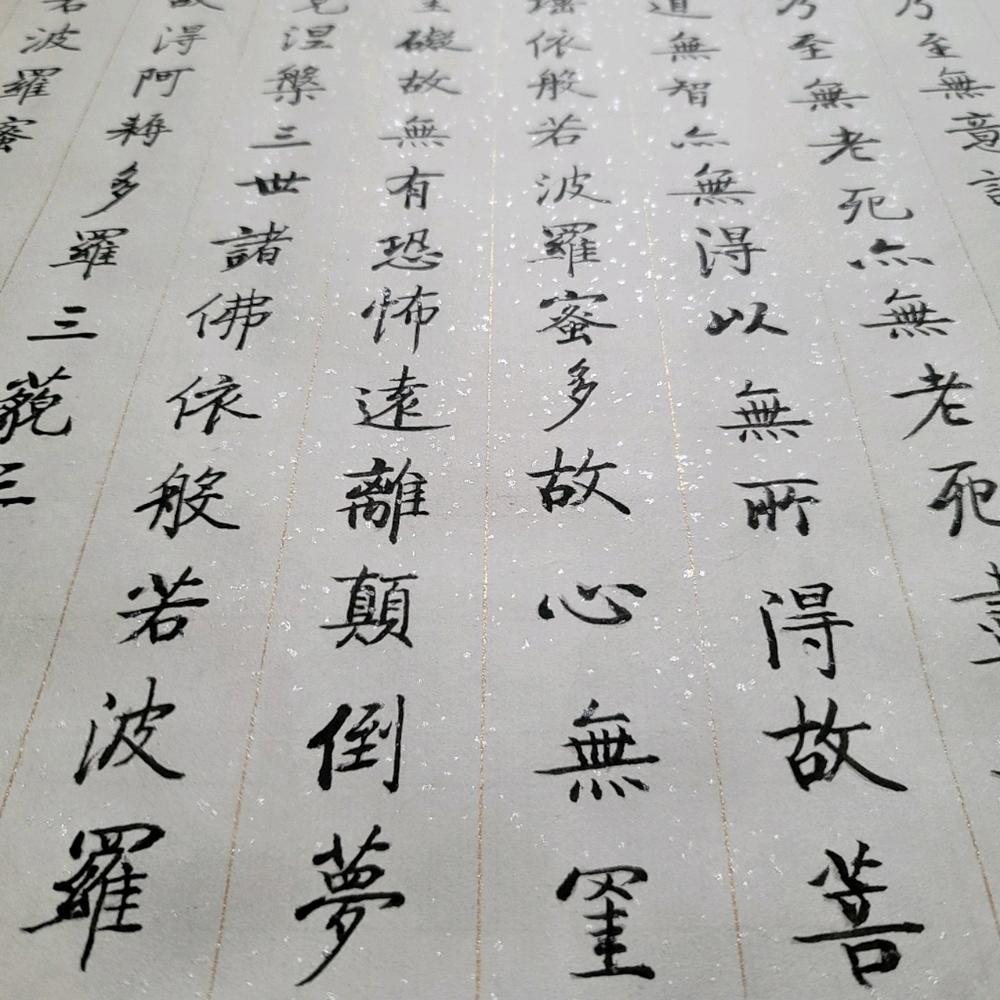 乃至無意
乃至無老死亦無老死盡
道無智亦無得以無所得故菩
埵依般若波羅蜜多故心無罣
礙故無有恐怖遠離顛倒夢
涅槃三世諸佛依般若波羅
故得阿耨多羅三藐三
若波羅蜜